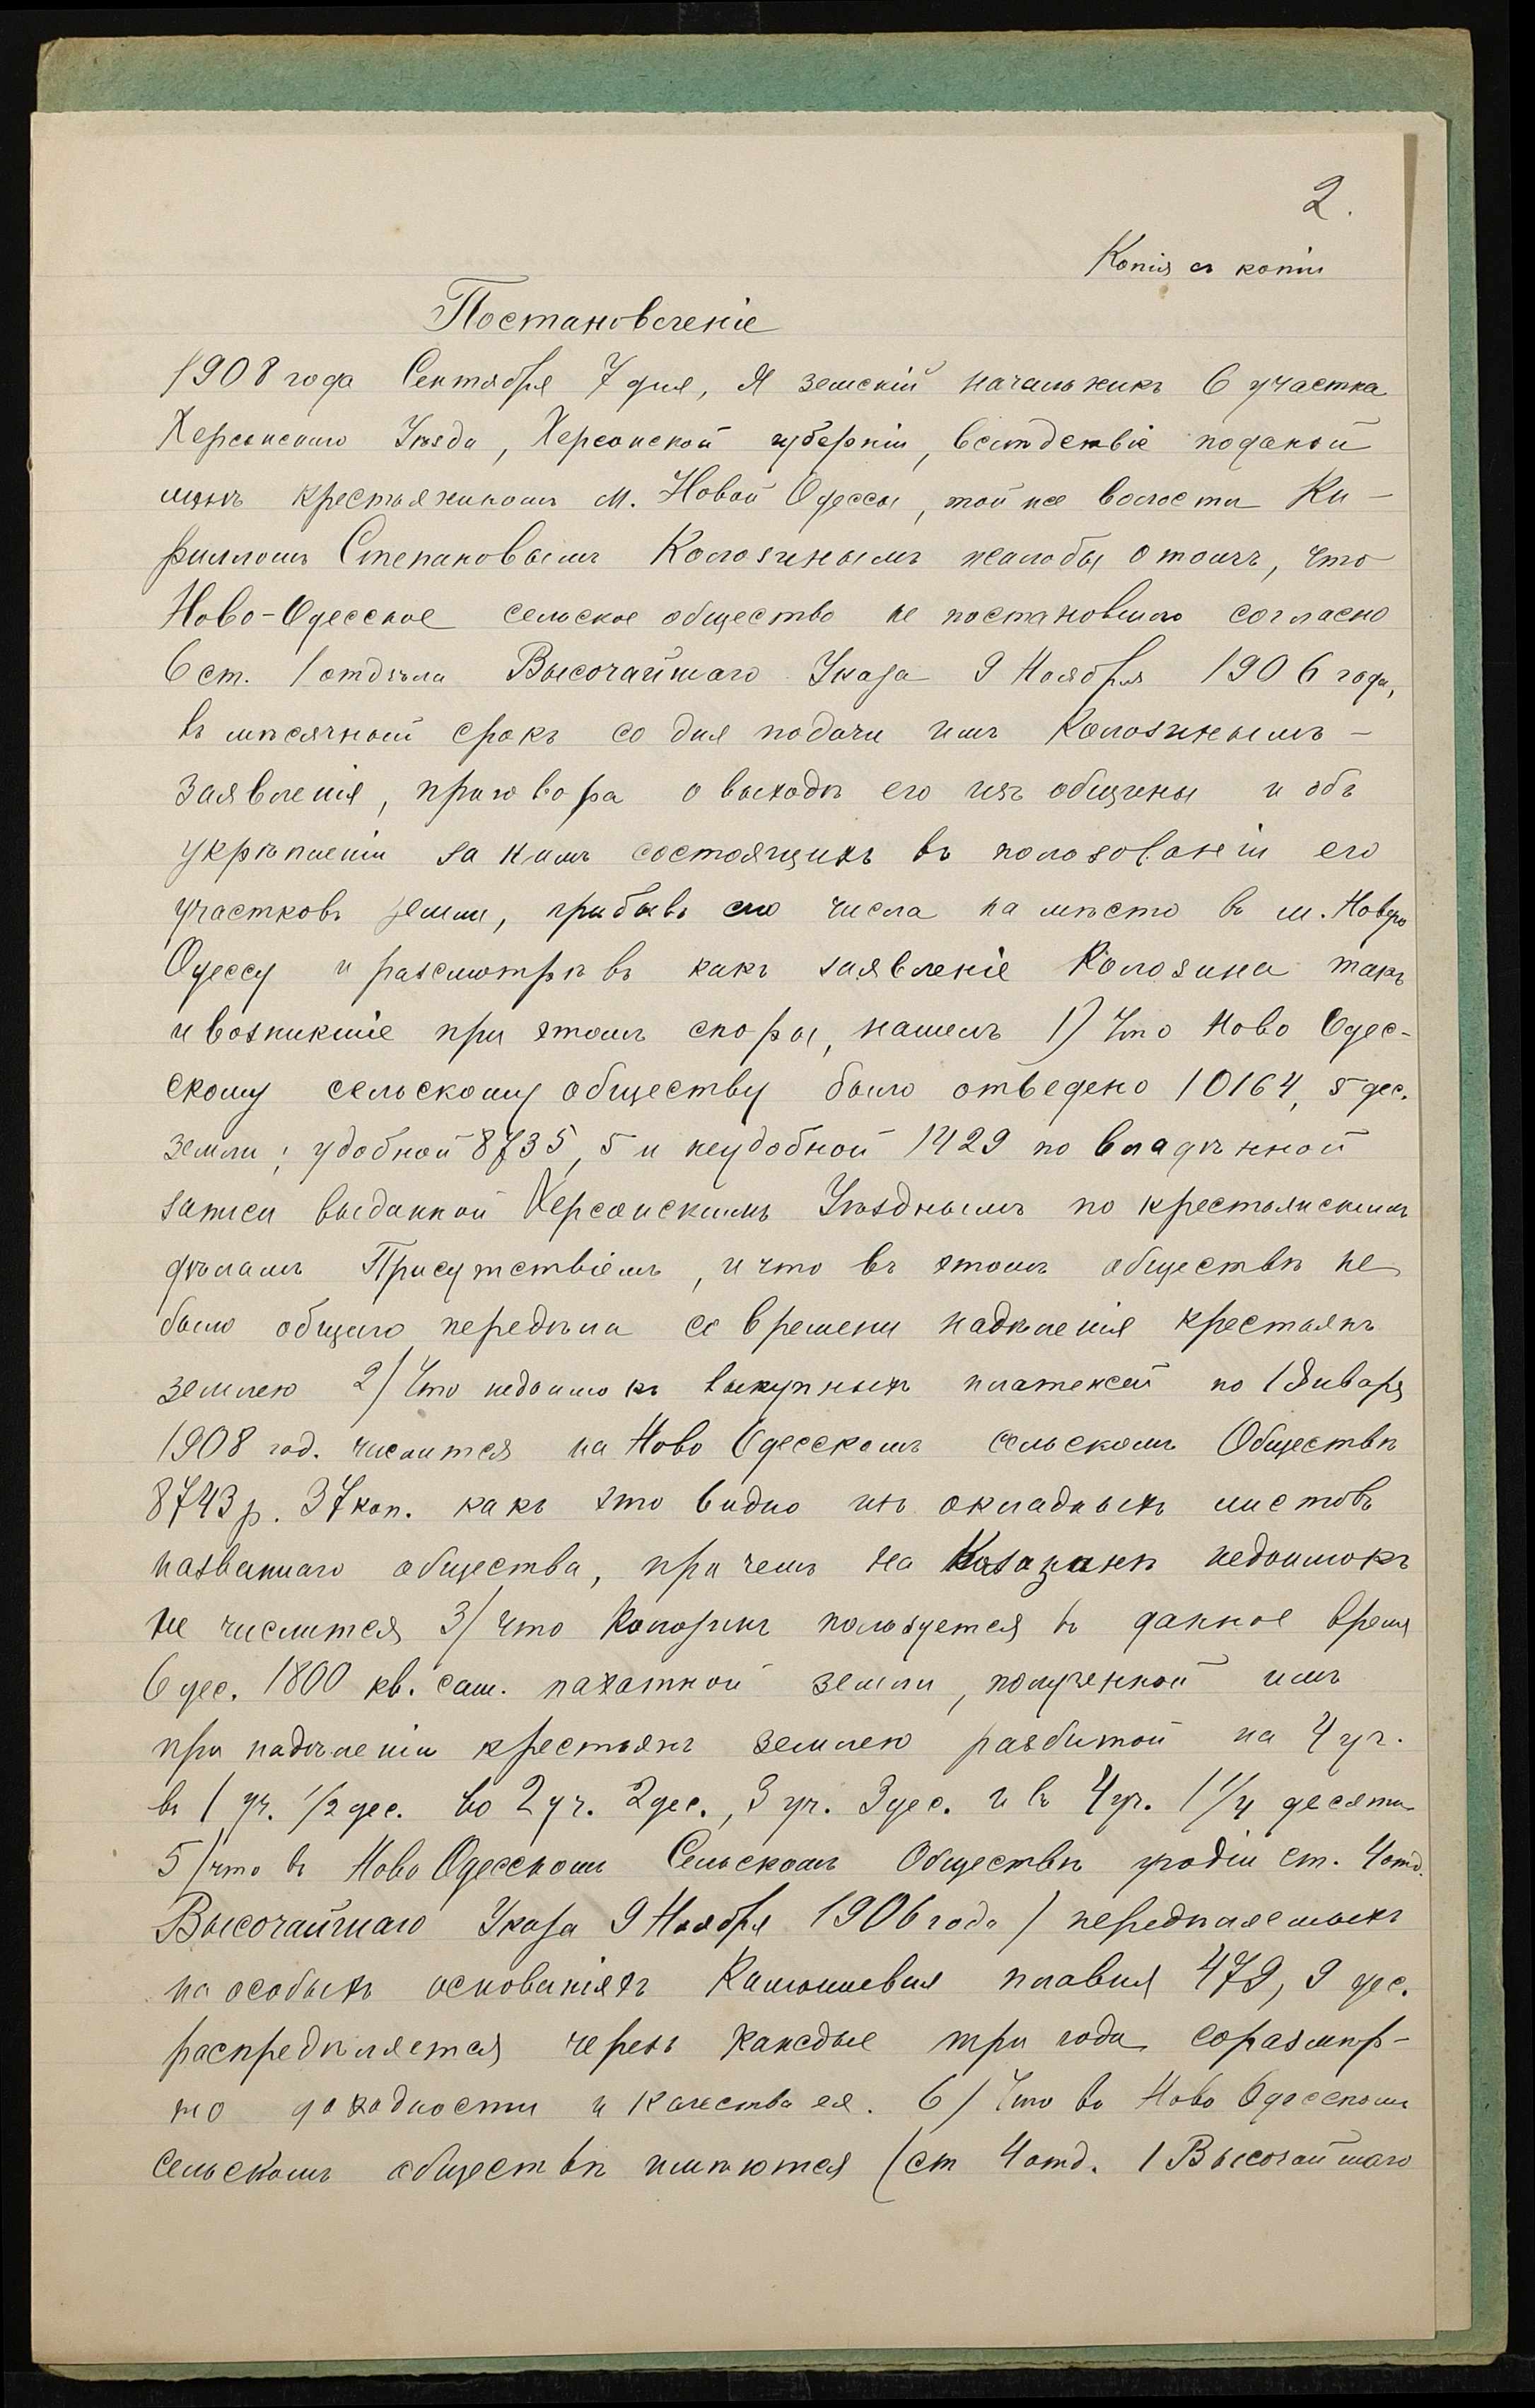 2.
Копія съ копіи
Постановленіе
1908 года Сентября 7 дня, Я земскій начальникъ 6 участка
Херсонскаго Уѣзда, Херсонской губерніи, вслѣдствіе поданой
мнѣ крестьяниномъ м. Новой Одессы, той же волости Ки-
рилломъ Степановымъ Колозинымъ жалобы о томъ, что
Ново-Одесское сельское общество не постановило согласно
6 ст. 1 отдѣла Высочайшаго Указа 9 Ноября 1906 года,
въ мѣсячный срокъ со дня подачи имъ Колозинымъ -
заявленія, приговора о выходѣ его изъ общины и объ
укрѣпленіи за нимъ состоящихъ въ пользованіи его
участковъ земли, прибывъ сего числа на мѣсто въ м. Новую
Одессу и разсмотрѣвъ какъ заявленіе Колозина такъ
и возникшіе при этомъ споры, нашелъ 1) Что Ново Одес-
скому сельскому обществу было отведено 10164,5 дес.
земли; удобной 8735,5 и неудобной 1429 по владѣнной
записи выданной Херсонскимъ Уѣзднымъ по крестьянскимъ
дѣламъ Присутствіемъ, и что въ этомъ обществѣ не
было общаго передѣла со времени надѣленія крестьянъ
землею 2) Что недоимокъ выкупныхъ платежей по 1 Января
1908 год. числится на Ново Одесскомъ сельскомъ Обществѣ
8743 р. 37 коп. какъ это видно изъ окладныхъ листовъ
названнаго общества, при чемъ на недоимокъ
не числится 3) что Колозинъ пользуется въ данное время
6 дес. 1800 кв. саж. пахатной земли, полученной имъ
при надѣленіи крестьянъ землею разбитой на 4 уч.
въ 1 уч. 1/2 дес. во 2 уч. 2 дес., 3 уч. 3 дес. и въ 4 уч. 1 1/4 десяти
5) что въ Ново Одесскомъ Сельскомъ Обществѣ угодіи ст. 4 отд.
Высочайшаго Указа 9 Ноября 1906 года) передѣляемыхъ
на особыхъ основаніяхъ Камышевая плавня 479,9 дес.
распредѣляется черезъ каждые три года соразмѣр-
но доходности и качества ея. 6) Что въ Ново Одесскомъ
Сельскомъ обществѣ имѣются (ст 4 отд. 1 Высочайшаго